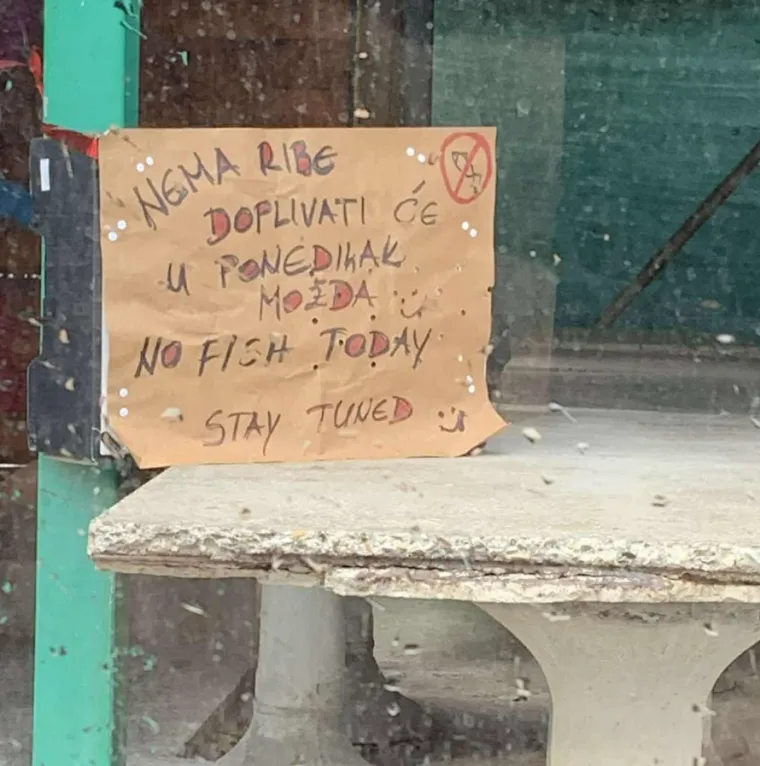 NEMA RIBE
DOPLIVATI ĆE
U PONEDILAK
MOŽDA :)
NO FISH TODAY
STAY TUNED :)